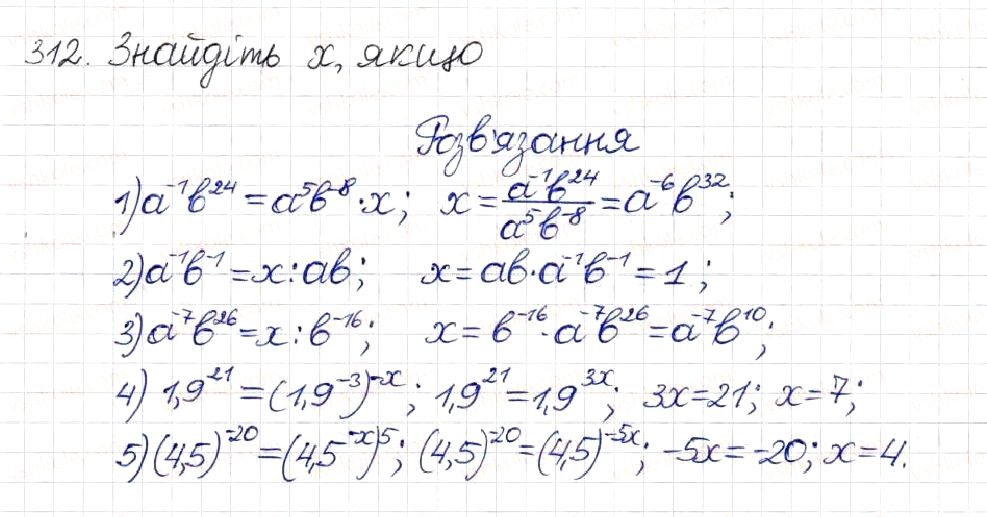 312. Знайдіть x, якщо
Розв'язання
1) a⁻¹b²⁴ = a⁵b⁻⁸ · x; x = a⁻¹b²⁴ / a⁵b⁻⁸ = a⁻⁶b³²;
2) a⁻¹b⁻¹ = x : ab; x = ab · a⁻¹b⁻¹ = 1;
3) a⁻⁷b²⁶ = x : b⁻¹⁶; x = b⁻¹⁶ · a⁻⁷b²⁶ = a⁻⁷b¹⁰;
4) 1,9²¹ = (1,9⁻³)⁻ˣ; 1,9²¹ = 1,9³ˣ; 3x = 21; x = 7;
5) (4,5)⁻²⁰ = (4,5⁻ˣ)⁵; (4,5)⁻²⁰ = (4,5)⁻⁵ˣ; -5x = -20; x = 4.